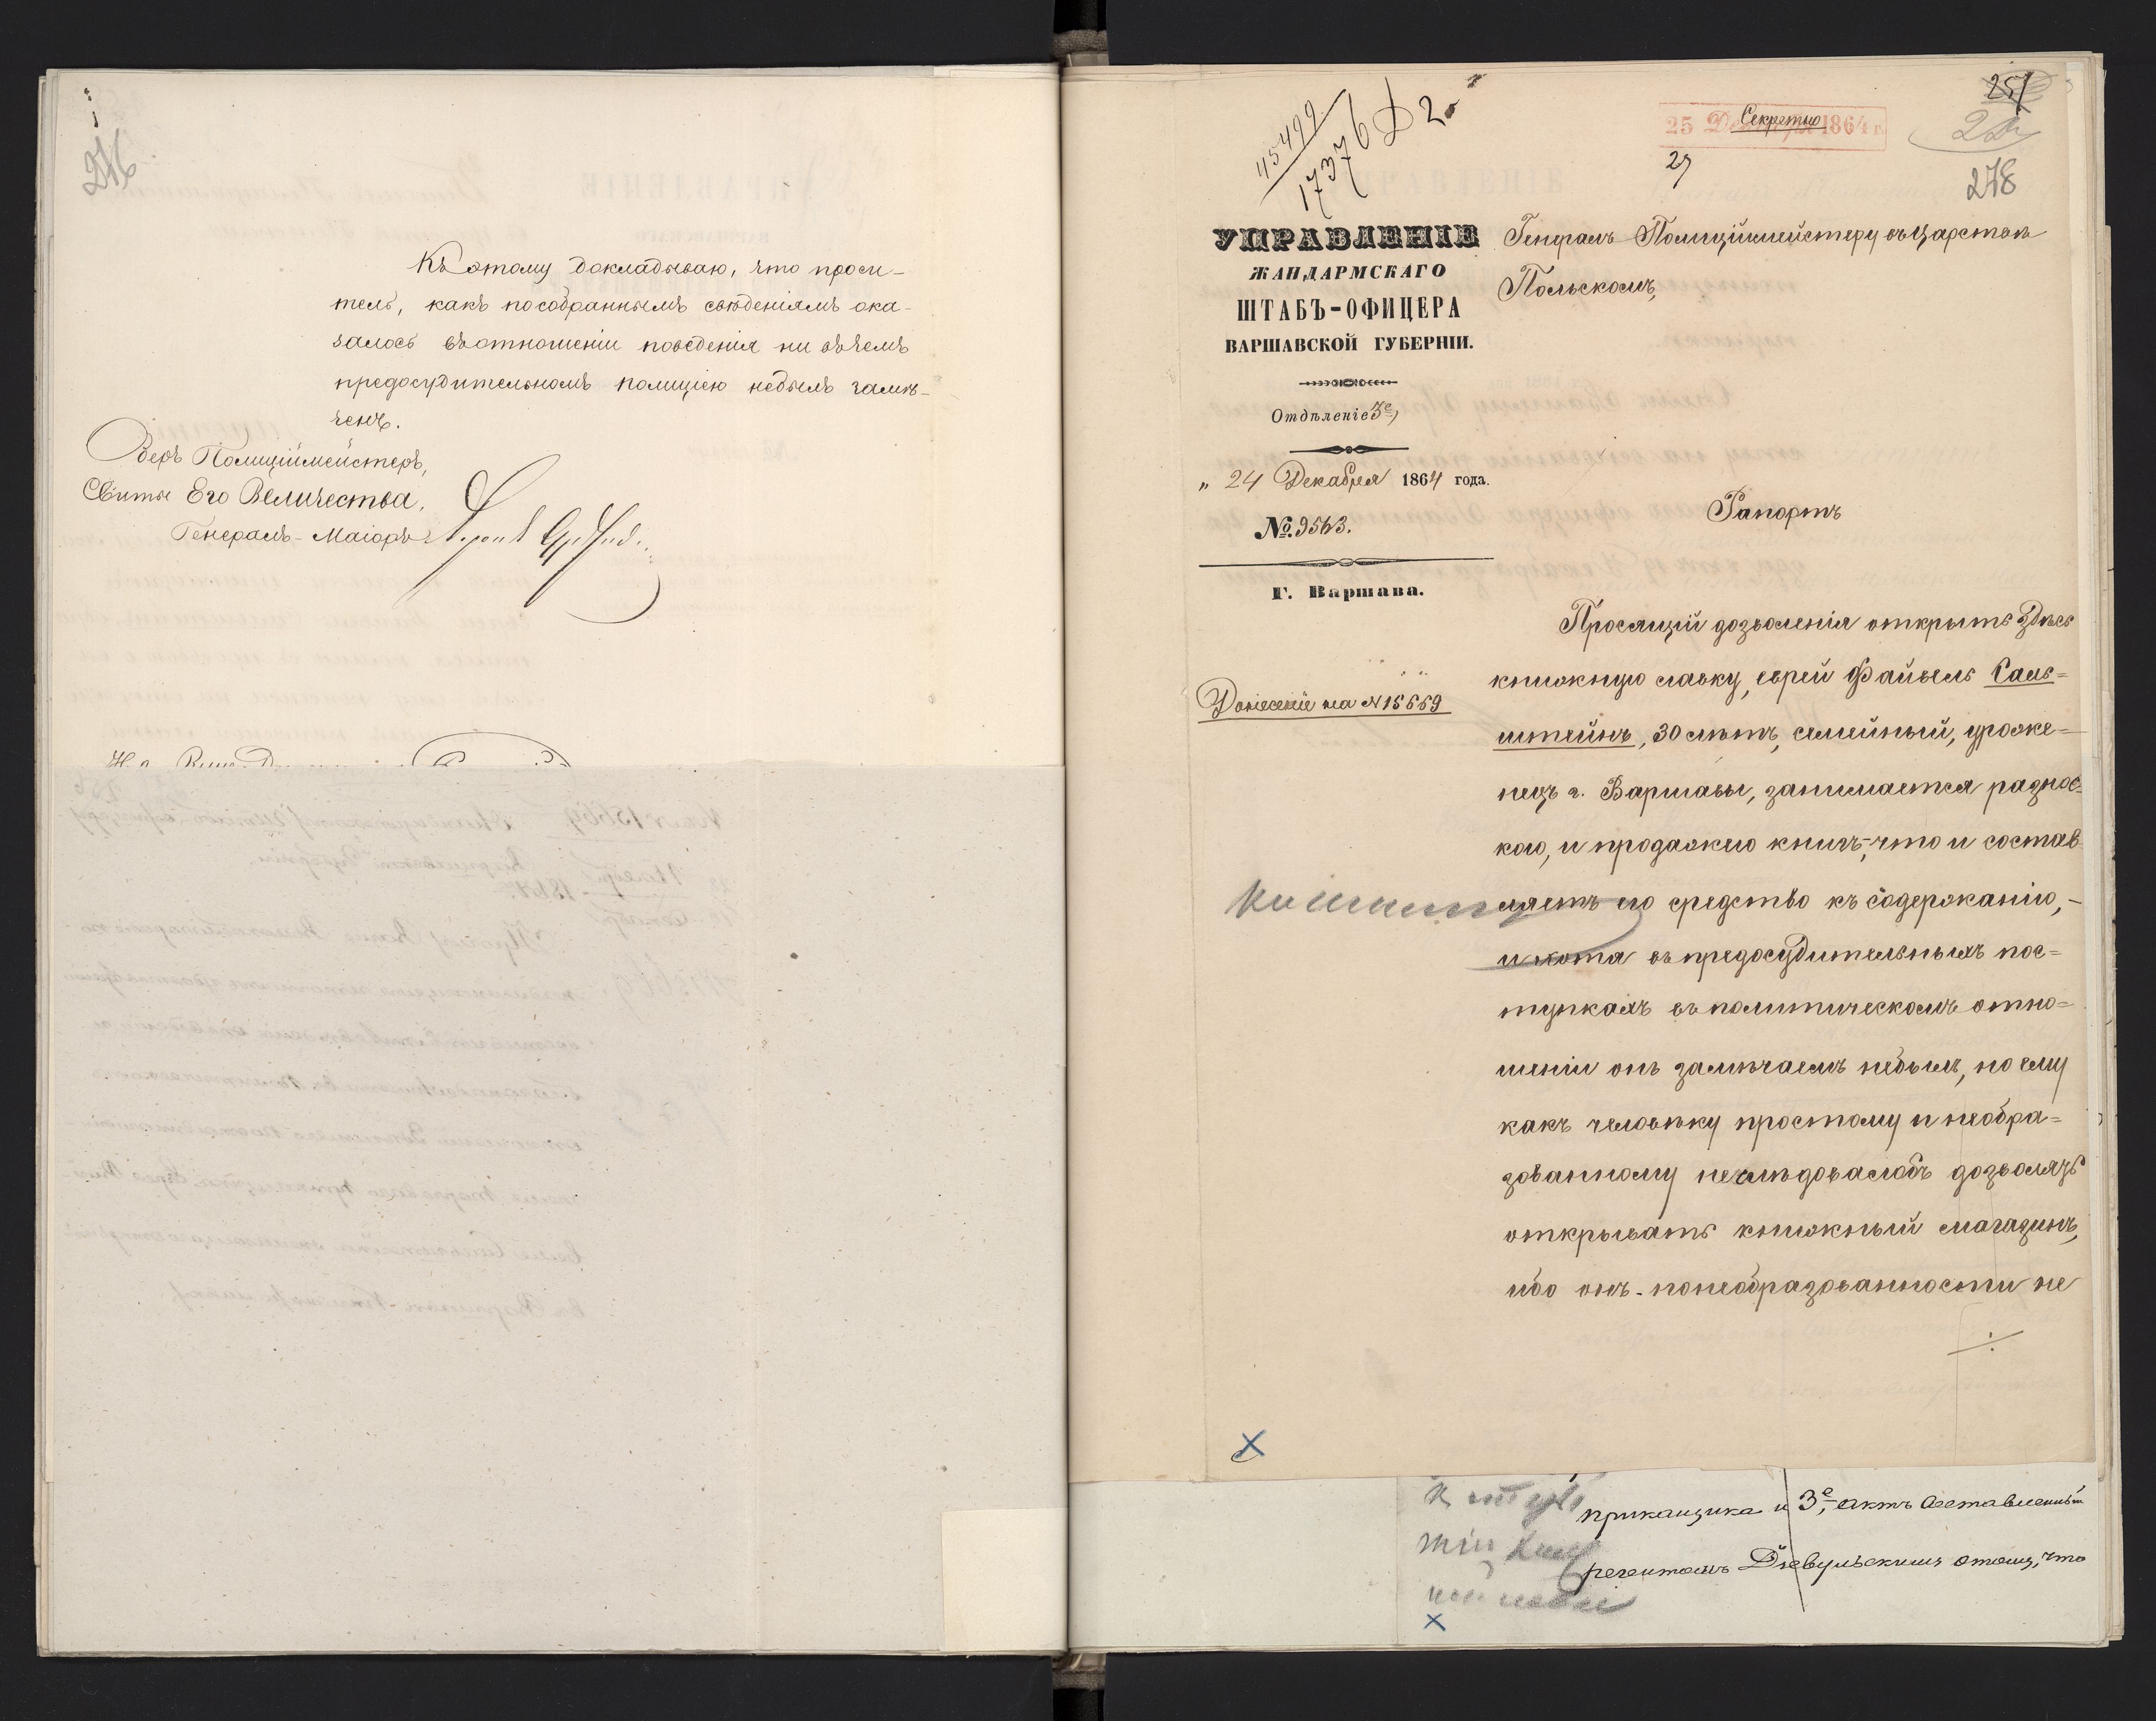 276
Къ этому докладываю, что проси-
тель, какъ по собраннымъ свѣдѣніямъ ока-
залось въ отношеніи поведенія ни въ чемъ
предосудительномъ полиціею небылъ замѣ-
ченъ.
Оберъ Полиціймейстеръ,
Свиты Его Величества,
Генералъ-Маіоръ
15499
17376
25 Декабря 1864 г.
Секретно
251
27
278
УПРАВЛЕНІЕ
ЖАНДАРМСКАГО
ШТАБЪ-ОФИЦЕРА
ВАРШАВСКОЙ ГУБЕРНІИ.
Отдѣленіе 3е,
„ 24 Декабря 1864 года.
№ 9563.
Г. Варшава.
Донесеніе на № 15669
Генералъ Полиціймейстеру въ Царствѣ
Польскомъ,
Рапортъ
Просящій дозволенія открыть здѣсь
книжную лавку, еврей Файвель Галь=
штейнъ, 30 лѣтъ, семейный, уроже=
нецъ г. Варшавы, занимается разнос=
кою, и продажею книгъ, что и состав
ляетъ его средство къ содержанію,-
и хотя въ предосудительныхъ пос=
тупкахъ въ политическомъ отно=
шеніи онъ замѣчаемъ небылъ, но ему
какъ человѣку простому и необра=
зованному неслѣдовалобъ дозволять
открывать книжный магазинъ,
ибо онъ по необразованности не
прикащика и 3е, актъ составленный
регентомъ Дзевульскимъ о томъ, что